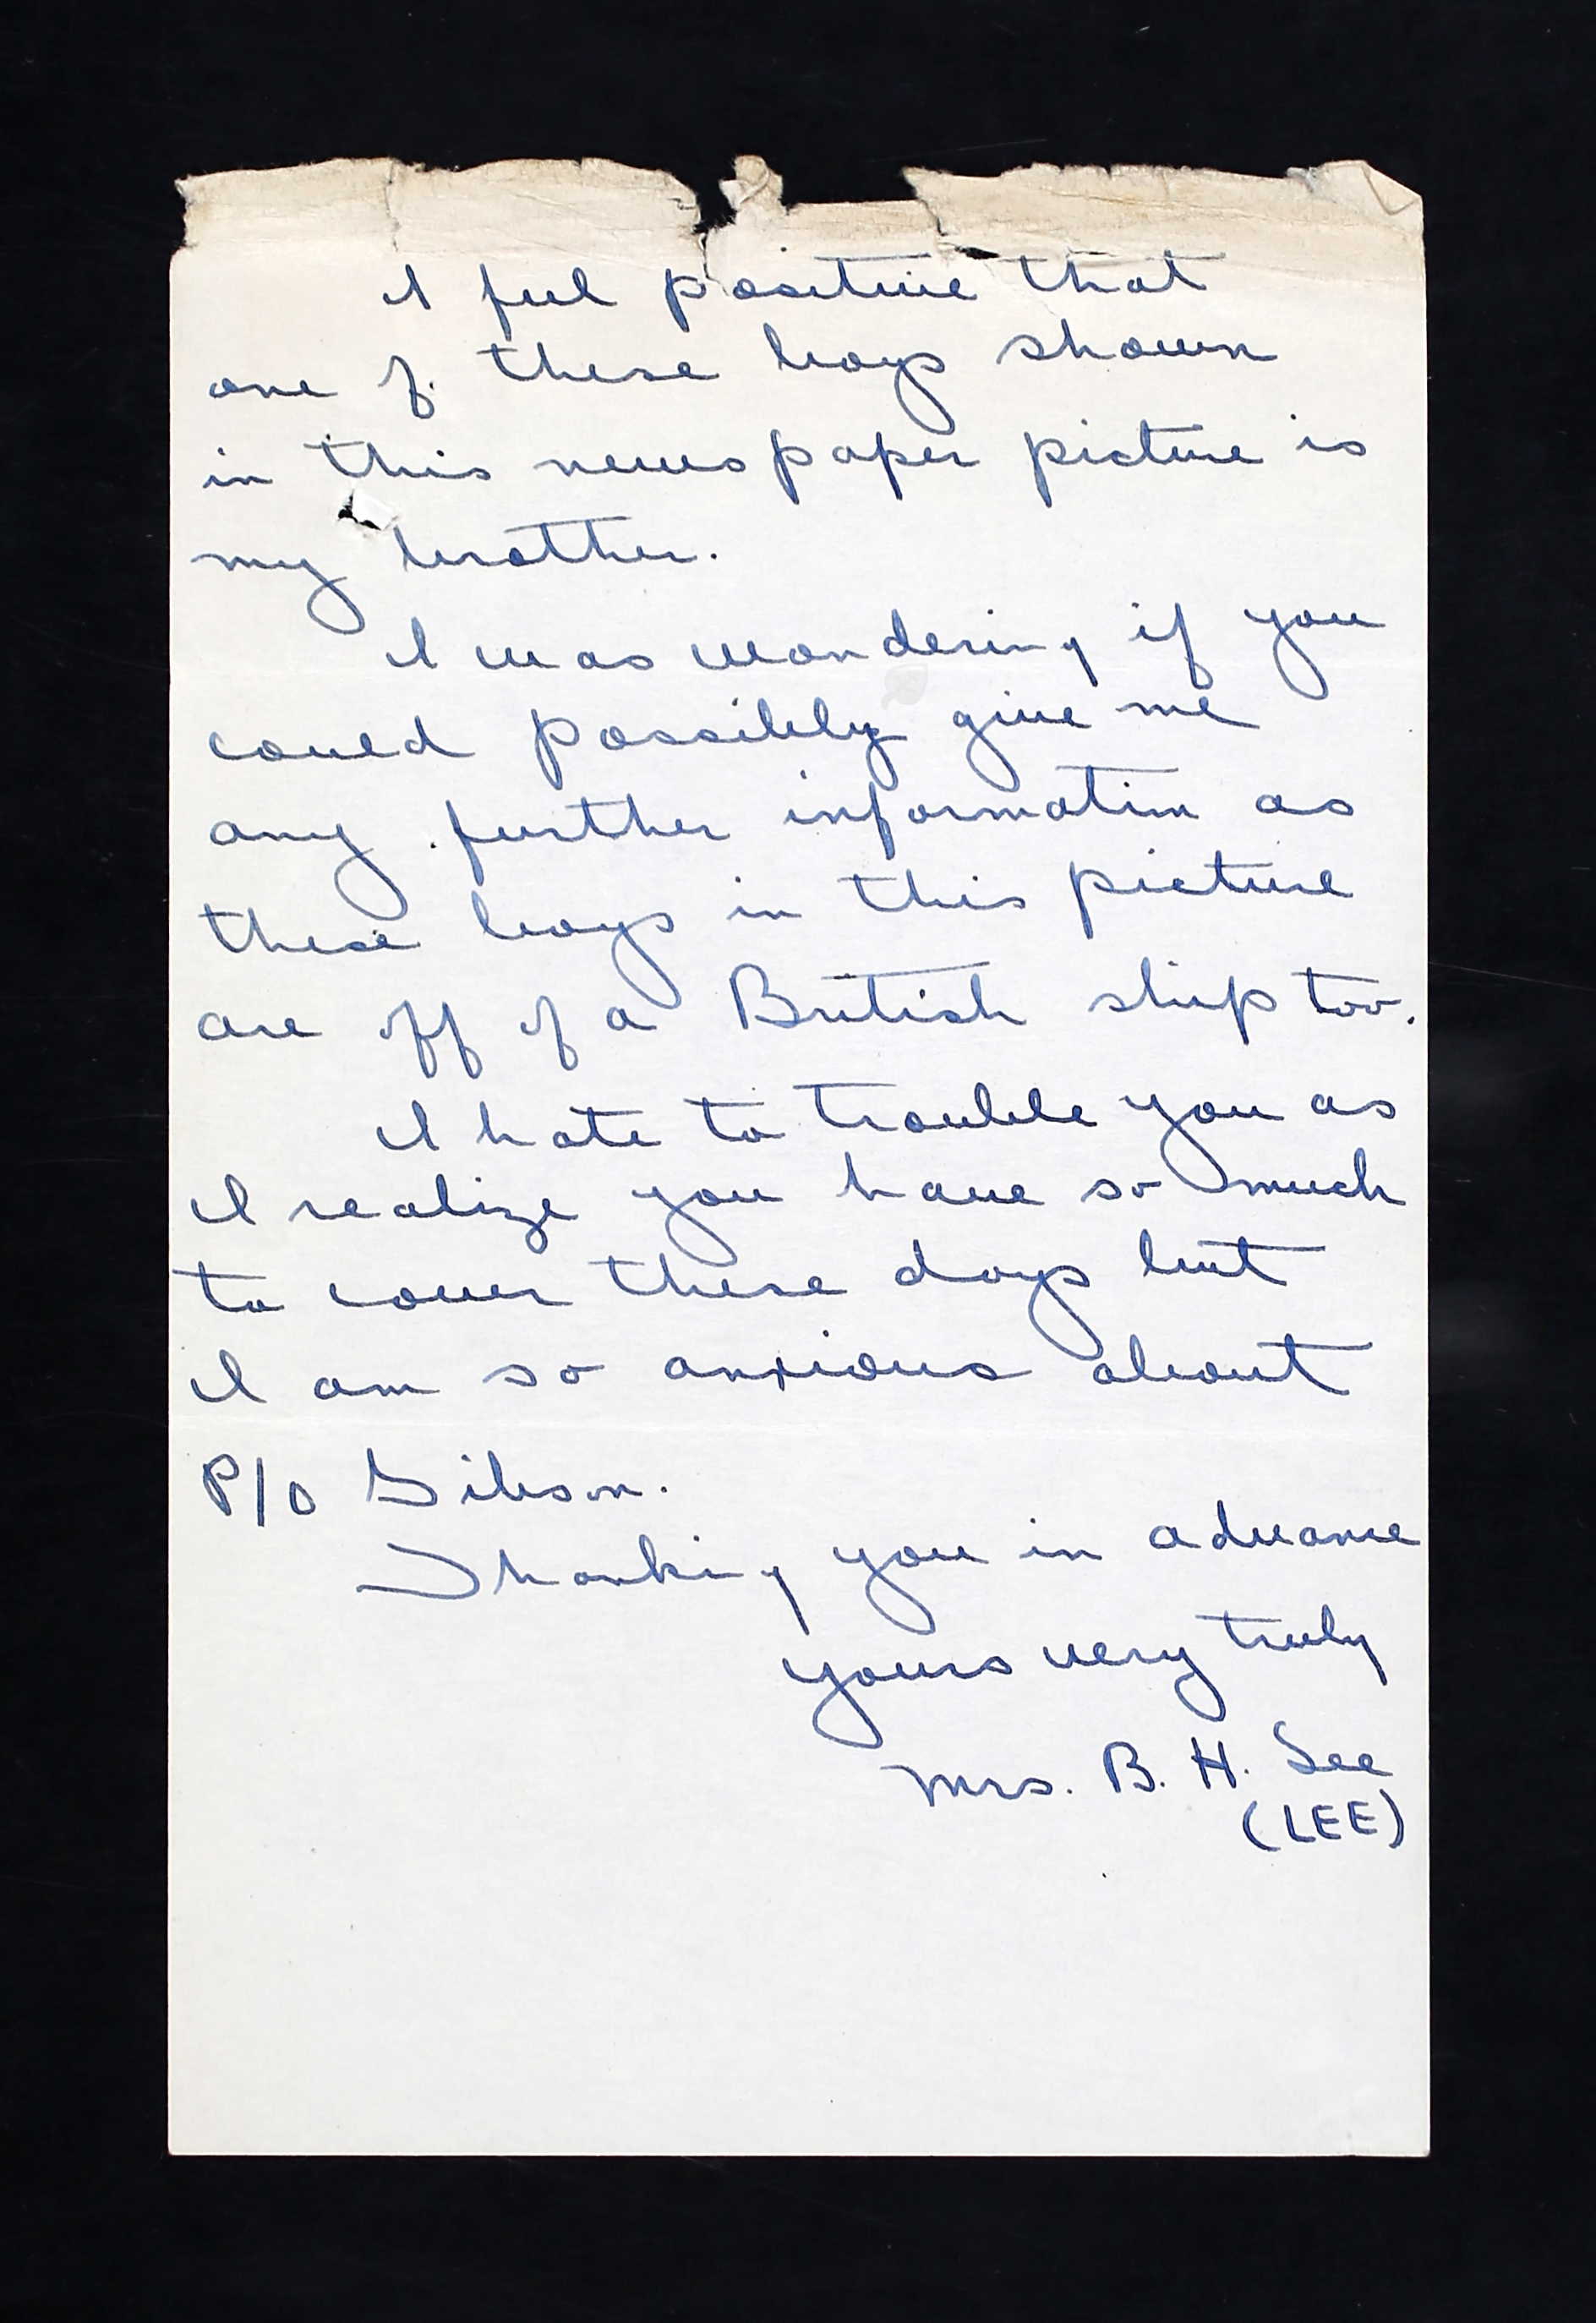 I feel positive that
one of these boys shown
in this newspaper picture is
my brother.
I was wondering if you
could possibly give me
any further information as
these boys in this picture
are off of a British ship too.
I hate to trouble you as
I realize you have so much
to cover these days but
I am so anxious about
P/O Gibson.
Thanking you in advance
yours very truly
Mrs. B. H. Lee
(LEE)